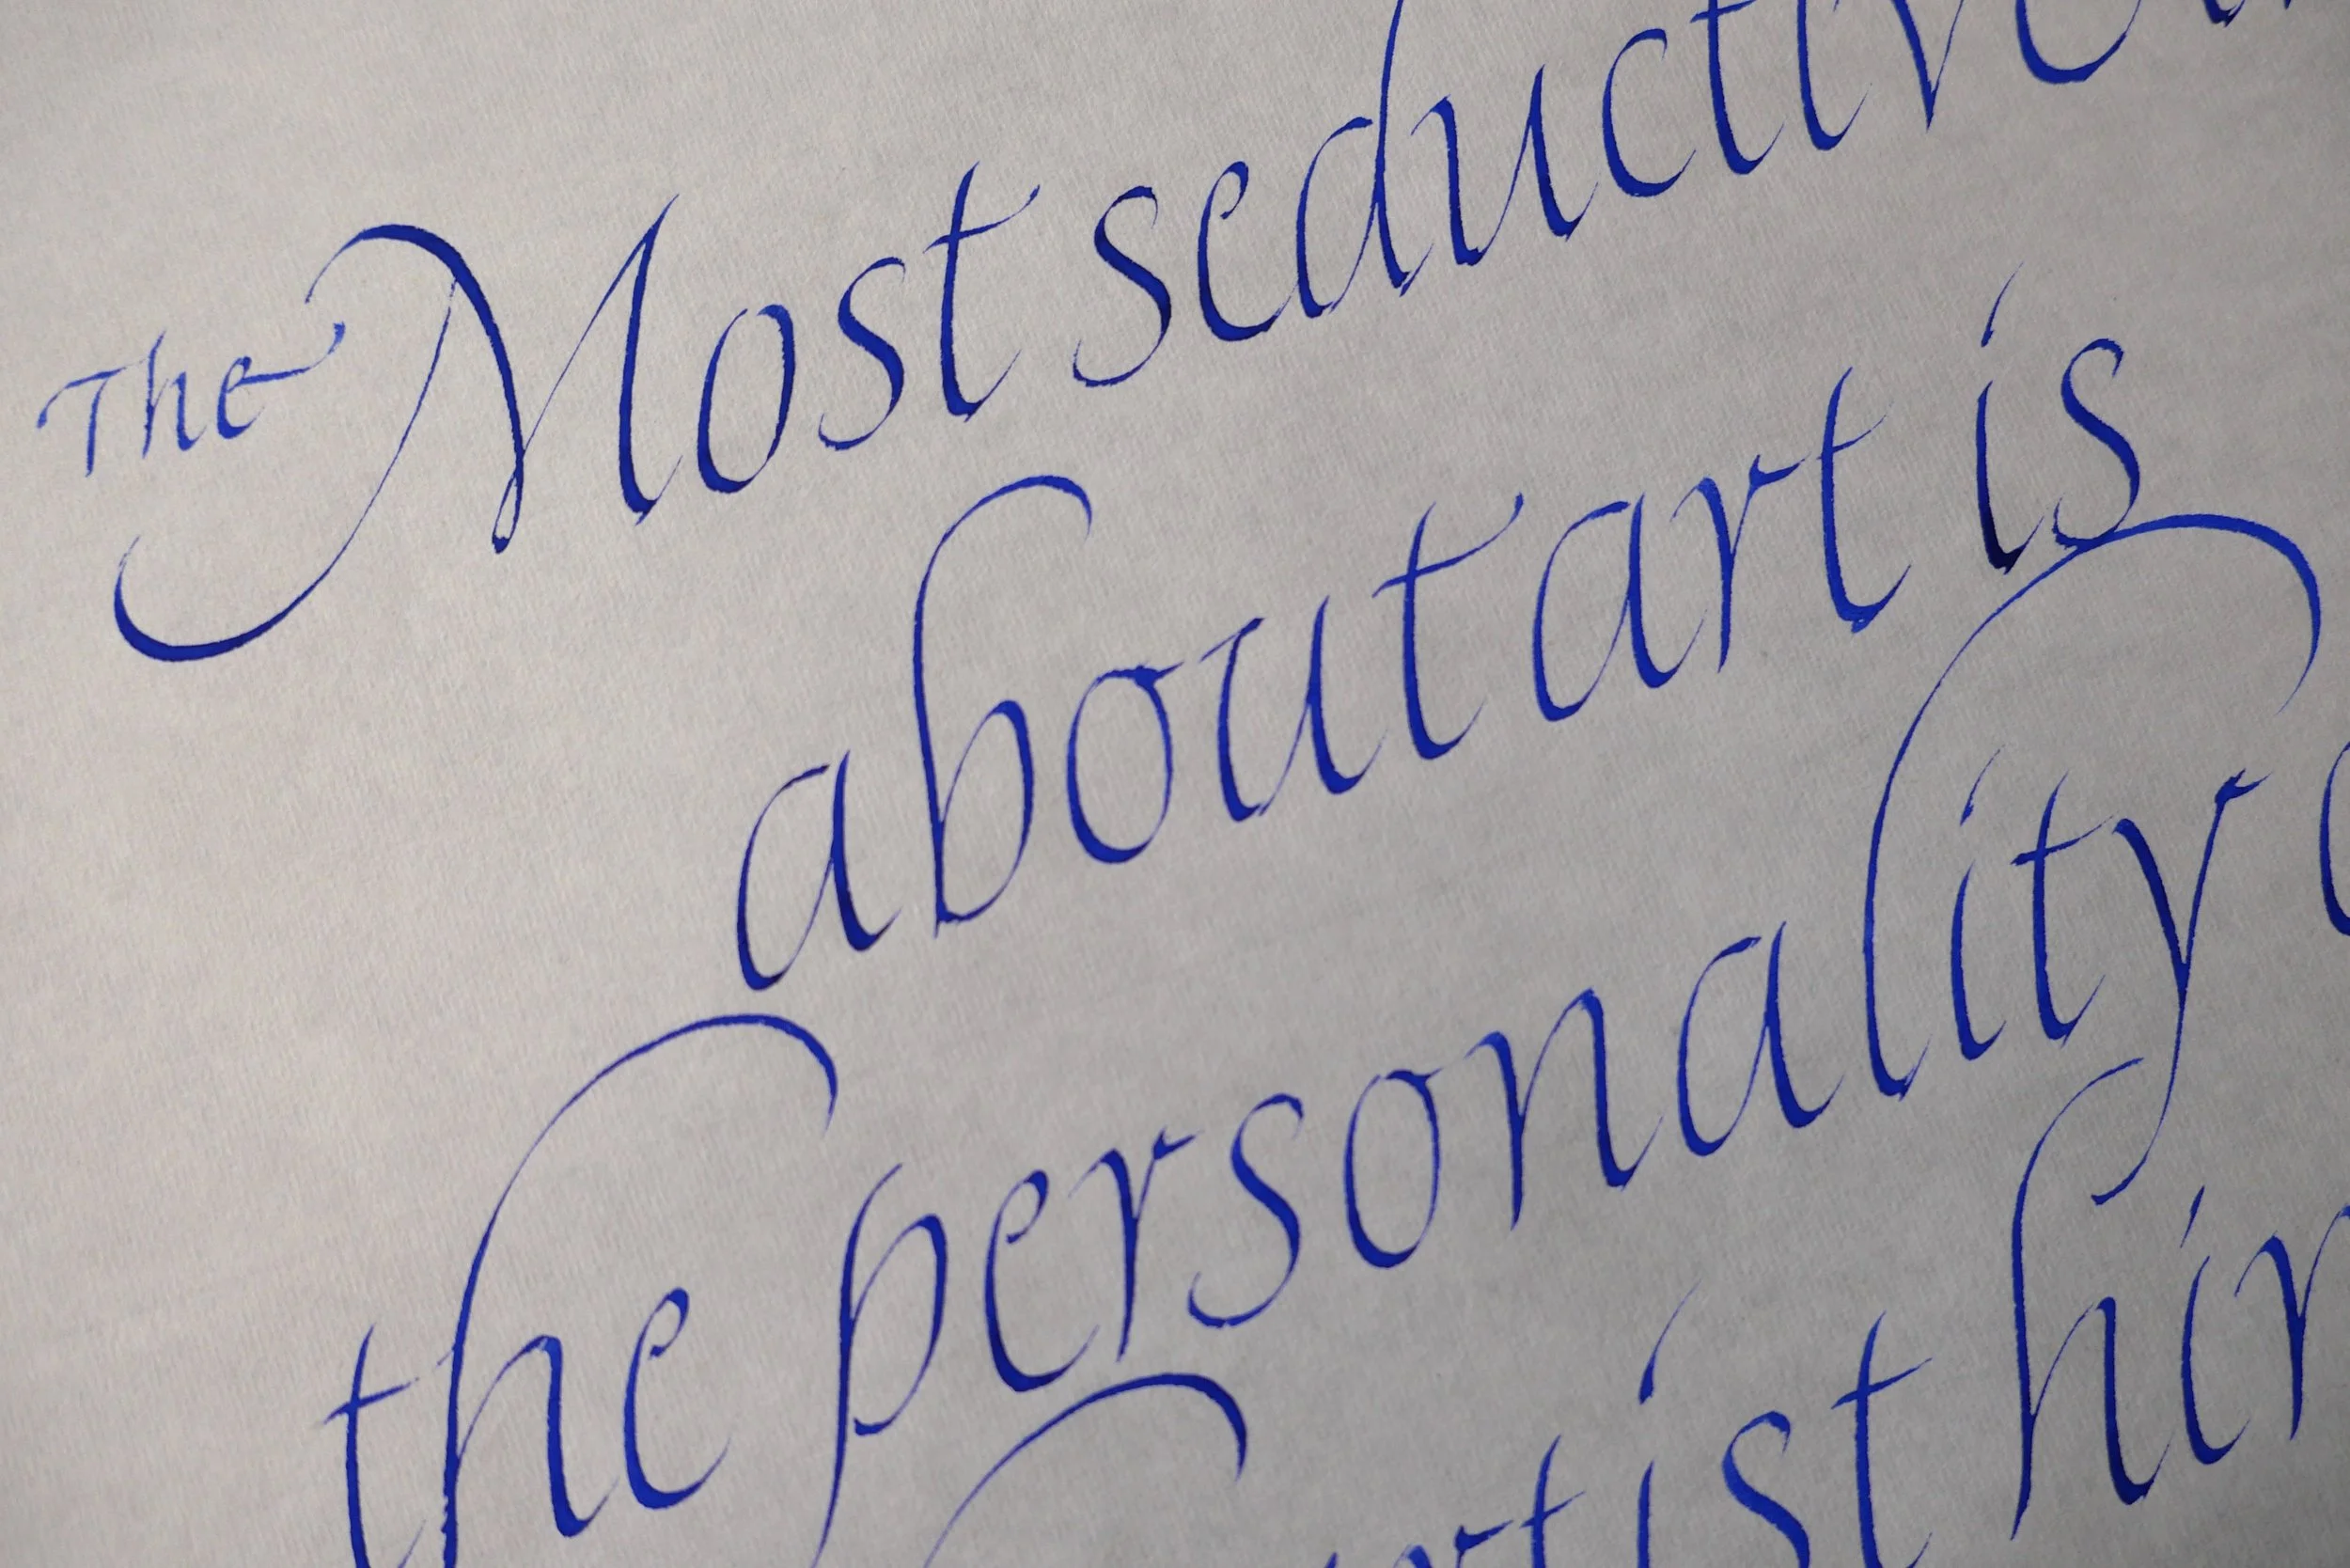 The Most seductive
about art is
the personality
artist